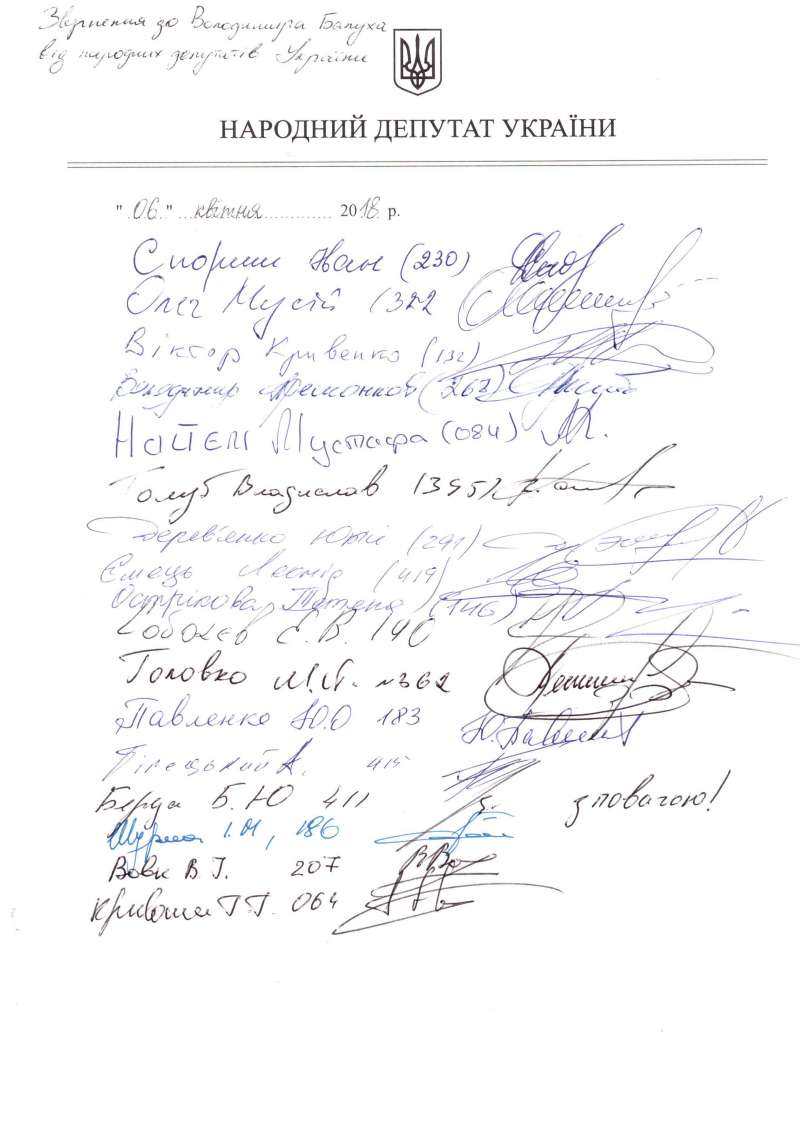 Звернення до Володимира Балуха
від народних депутатів України
НАРОДНИЙ ДЕПУТАТ УКРАЇНИ
" 06 " квітня 2018 р.
Спориш Іван (230)
Олег Мусій (322
Віктор Кривенко (132)
Володимир (262)
Найєм Мустафа (084)
Голуб Владислав (395)
Дерев'янко Юрій (291)
Ємець Леонід (419)
Острікова Тетяна (146)
Соболєв Є.В. 190
Головко М.Й. №362
Павленко Ю.О 183
Ю. Павленко
Білецький А. 415
Береза Б.Ю 411
з повагою!
І.М, 186
Вовк В.І. 207
Кривоша Т Г. 064